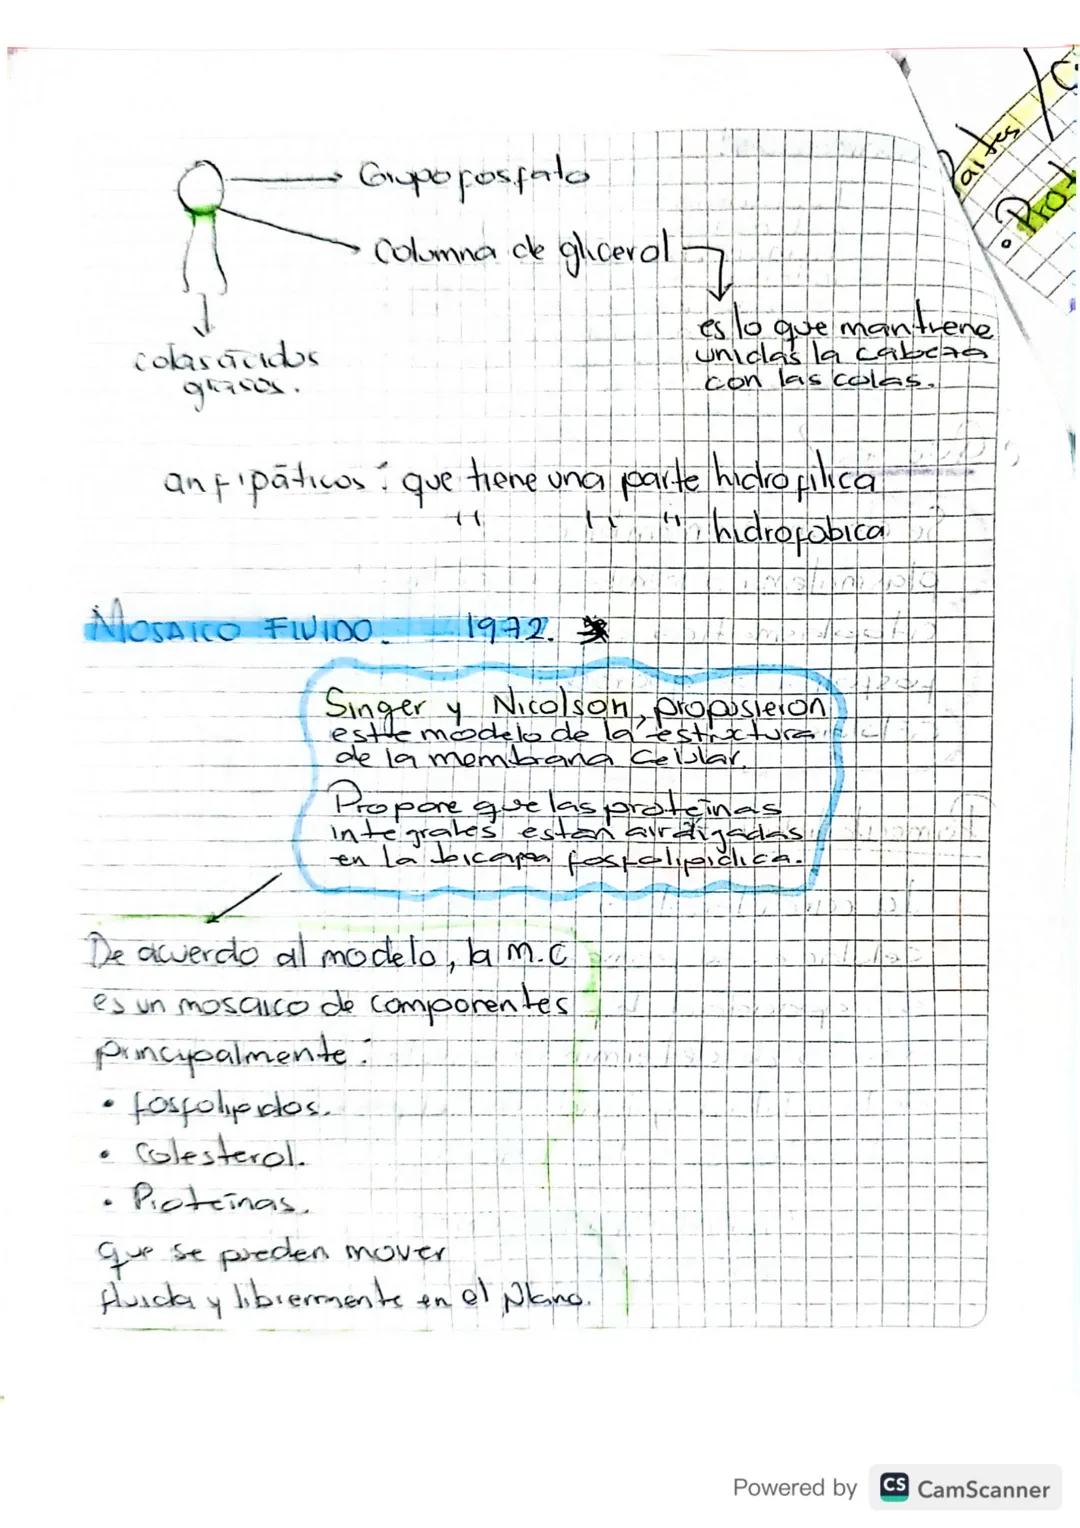 Grupo fosfato
Columna de glicerol
es lo que mantiene
unidas la cabeza
con las colas.
colas ácidos
grasos.
anfipáticos: que tiene una parte hidrofílica
" " " hidrofobica
MOSAICO FLUIDO. 1972.
Singer y Nicolson, propusieron
este modelo de la estructura
de la membrana celular.
Propone que las proteínas
integrales estan airaigadas
en la bicapa fosfolipidica.
De acuerdo al modelo, la m.c
es un mosaico de componentes
principalmente:
• fosfolipidos.
• Colesterol.
• Proteínas.
que se pueden mover
fluida y libremente en el plano.
Partes
• Prot
Powered by CS CamScanner